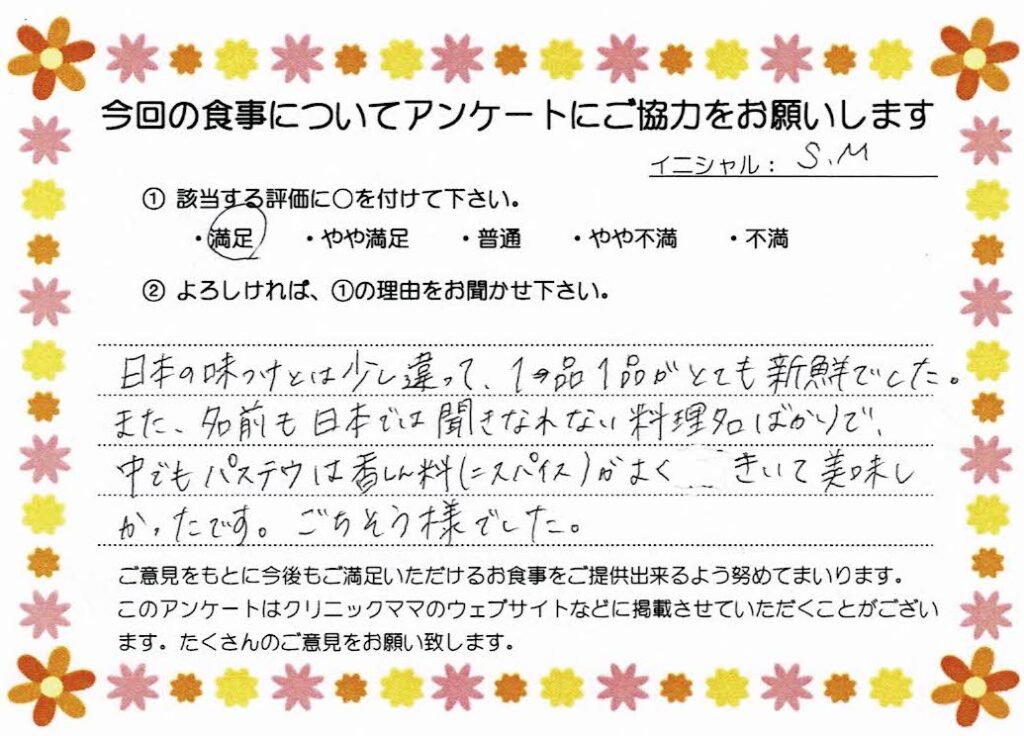 今回の食事についてアンケートにご協力をお願いします
イニシャル： S.M
① 該当する評価に○を付けて下さい。
・満足 ・やや満足 ・普通 ・やや不満 ・不満
② よろしければ、①の理由をお聞かせ下さい。
日本の味つけとは少し違って、1品1品がとても新鮮でした。
また、名前も日本では聞きなれない料理名ばかりで、
中でもパステウは香しん料(=スパイス)がよくきいて美味し
かったです。ごちそう様でした。
ご意見をもとに今後もご満足いただけるお食事をご提供出来るよう努めてまいります。
このアンケートはクリニックママのウェブサイトなどに掲載させていただくことがござい
ます。たくさんのご意見をお願い致します。